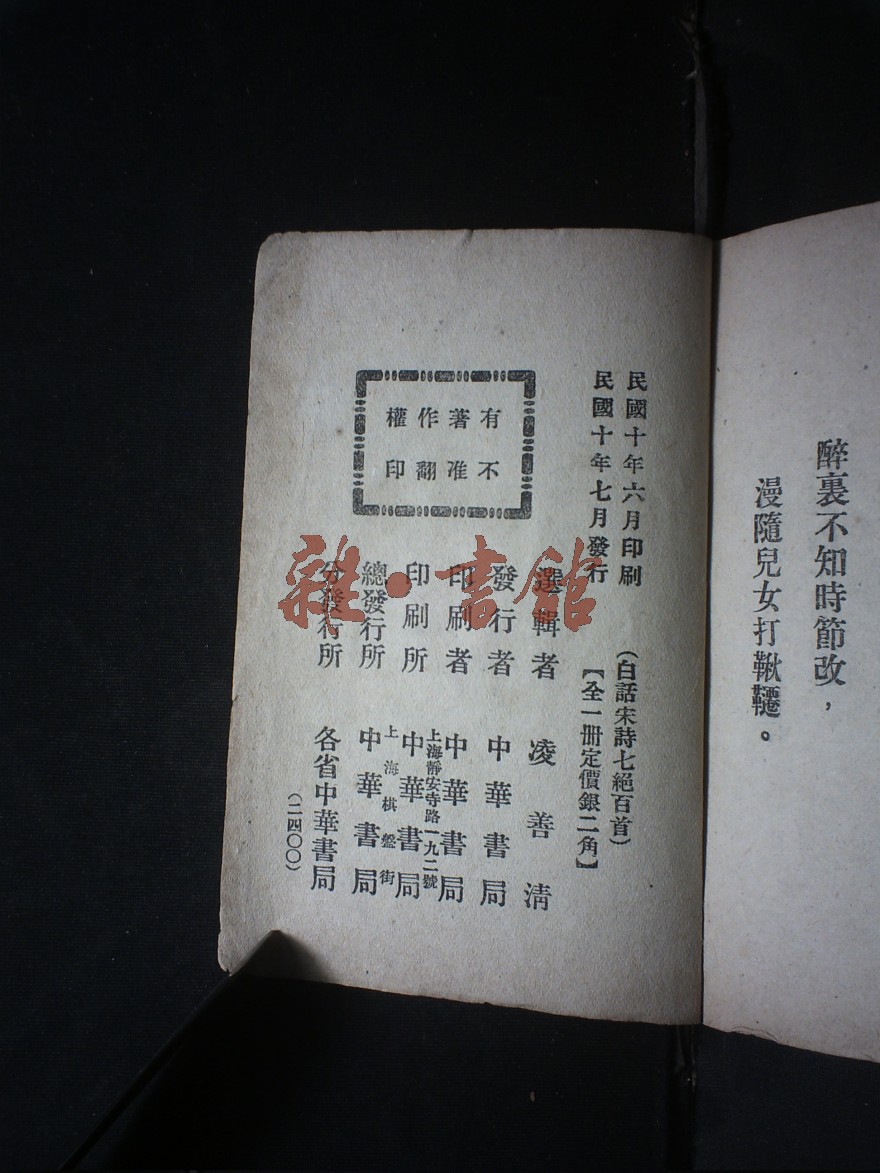 醉裏不知時節改，
漫隨兒女打鞦韆。
民國十年六月印刷
民國十年七月發行
（白話宋詩七絕百首）
【全一册定價銀二角】
有著作權
不准翻印
選輯者 凌善清
發行者 中華書局
印刷者 中華書局
上海靜安寺路一九二號
印刷所 中華書局
上海棋盤街
總發行所 中華書局
分發行所 各省中華書局
（二四〇〇）
雜·書館